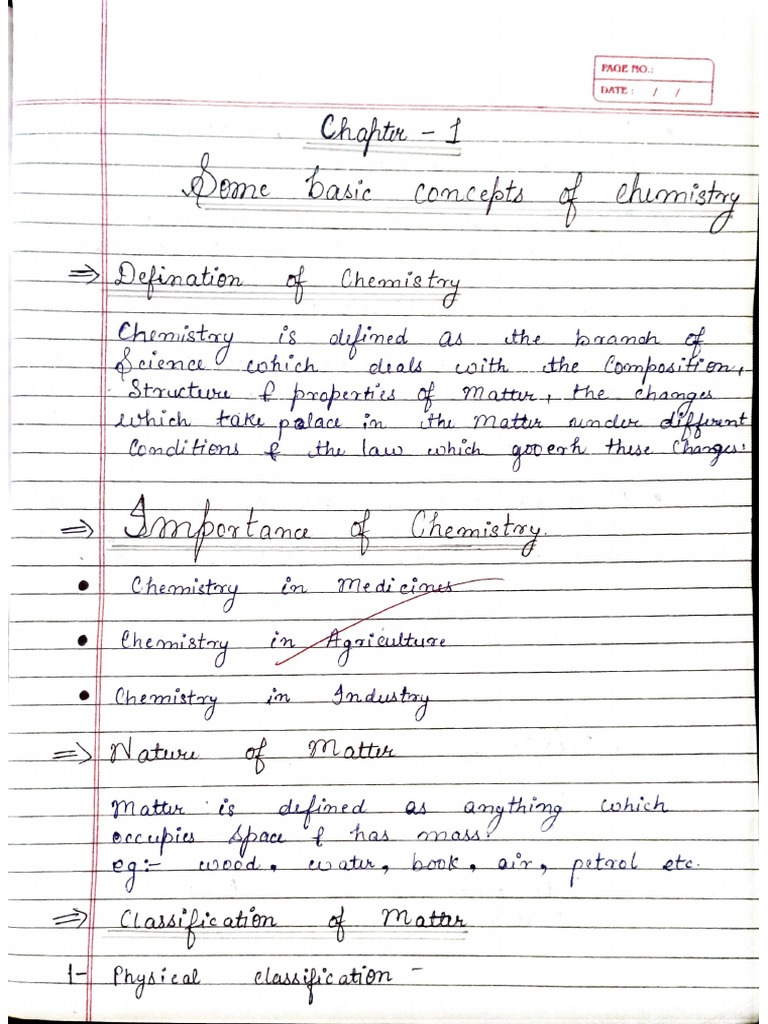 PAGE NO.:
DATE : / /
Chapter - 1
Some basic concepts of chemistry
⇒ Defination of Chemistry
Chemistry is defined as the branch of
Science which deals with the Composition,
Structure & properties of Matter, the changes
which take palace in the Matter under different
Conditions & the law which govern these Changes.
⇒ Importance of Chemistry.
• Chemistry in Medicines
• Chemistry in Agriculture
• Chemistry in Industry
⇒ Nature of Matter
Matter is defined as anything which
occupies space & has mass.
eg:- wood, water, book, air, petrol etc.
⇒ Classification of Matter
1- Physical classification -